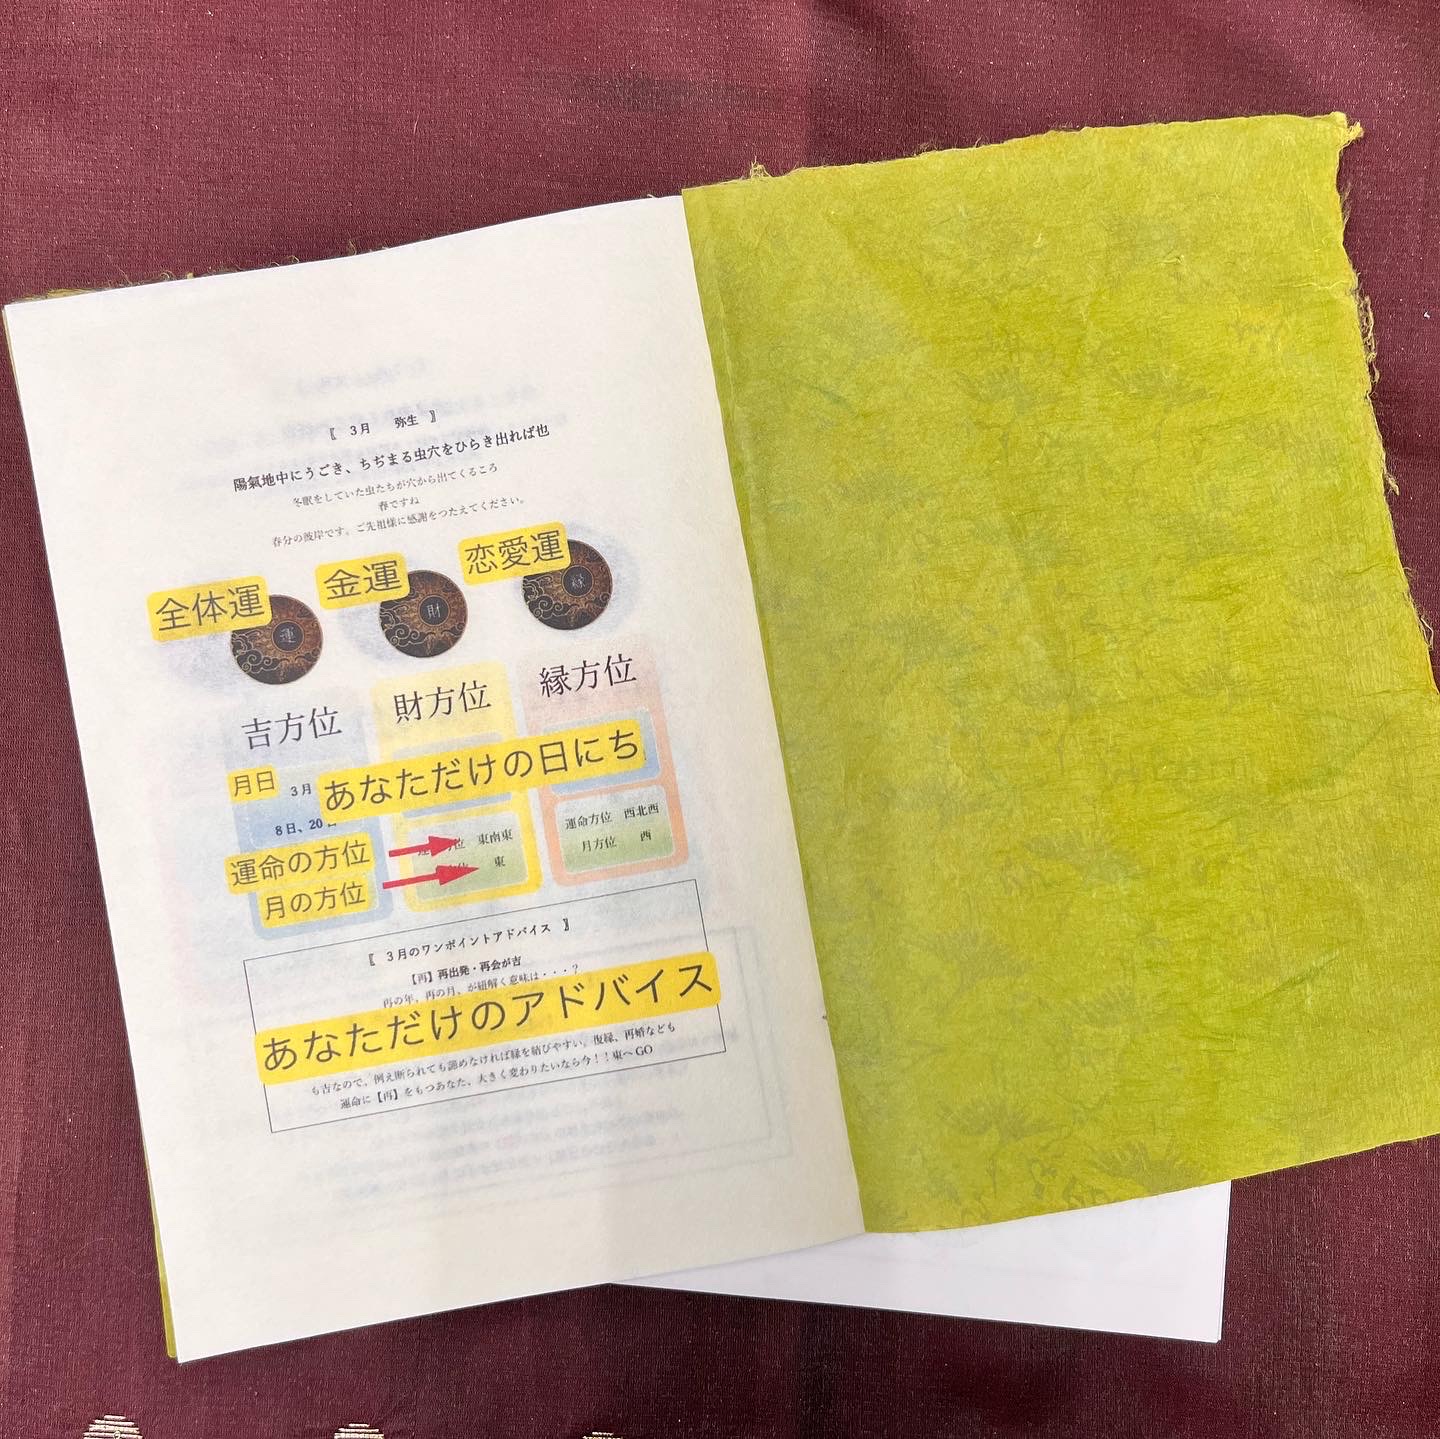 〖 3月　弥生 〗
陽氣地中にうごき、ちぢまる虫穴をひらき出れば也
冬眠をしていた虫たちが穴から出てくるころ
春ですね
春分の彼岸です。ご先祖様に感謝をつたえてください。
全体運 金運 恋愛運
運 財 縁
吉方位 財方位 縁方位
月日 3月 あなただけの日にち
8日、20日
運命の方位 東南東 運命方位 酉北西
月の方位 東 月方位 酉
〖 3月のワンポイントアドバイス 〗
【再】再出発・再会が吉
再の年、再の月、が紐解く意味は・・・?
あなただけのアドバイス
も吉なので、例え断られても諦めなければ縁を結びやすい。復縁、再婚なども
運命に【再】をもつあなた、大きく変わりたいなら今！！東へGO